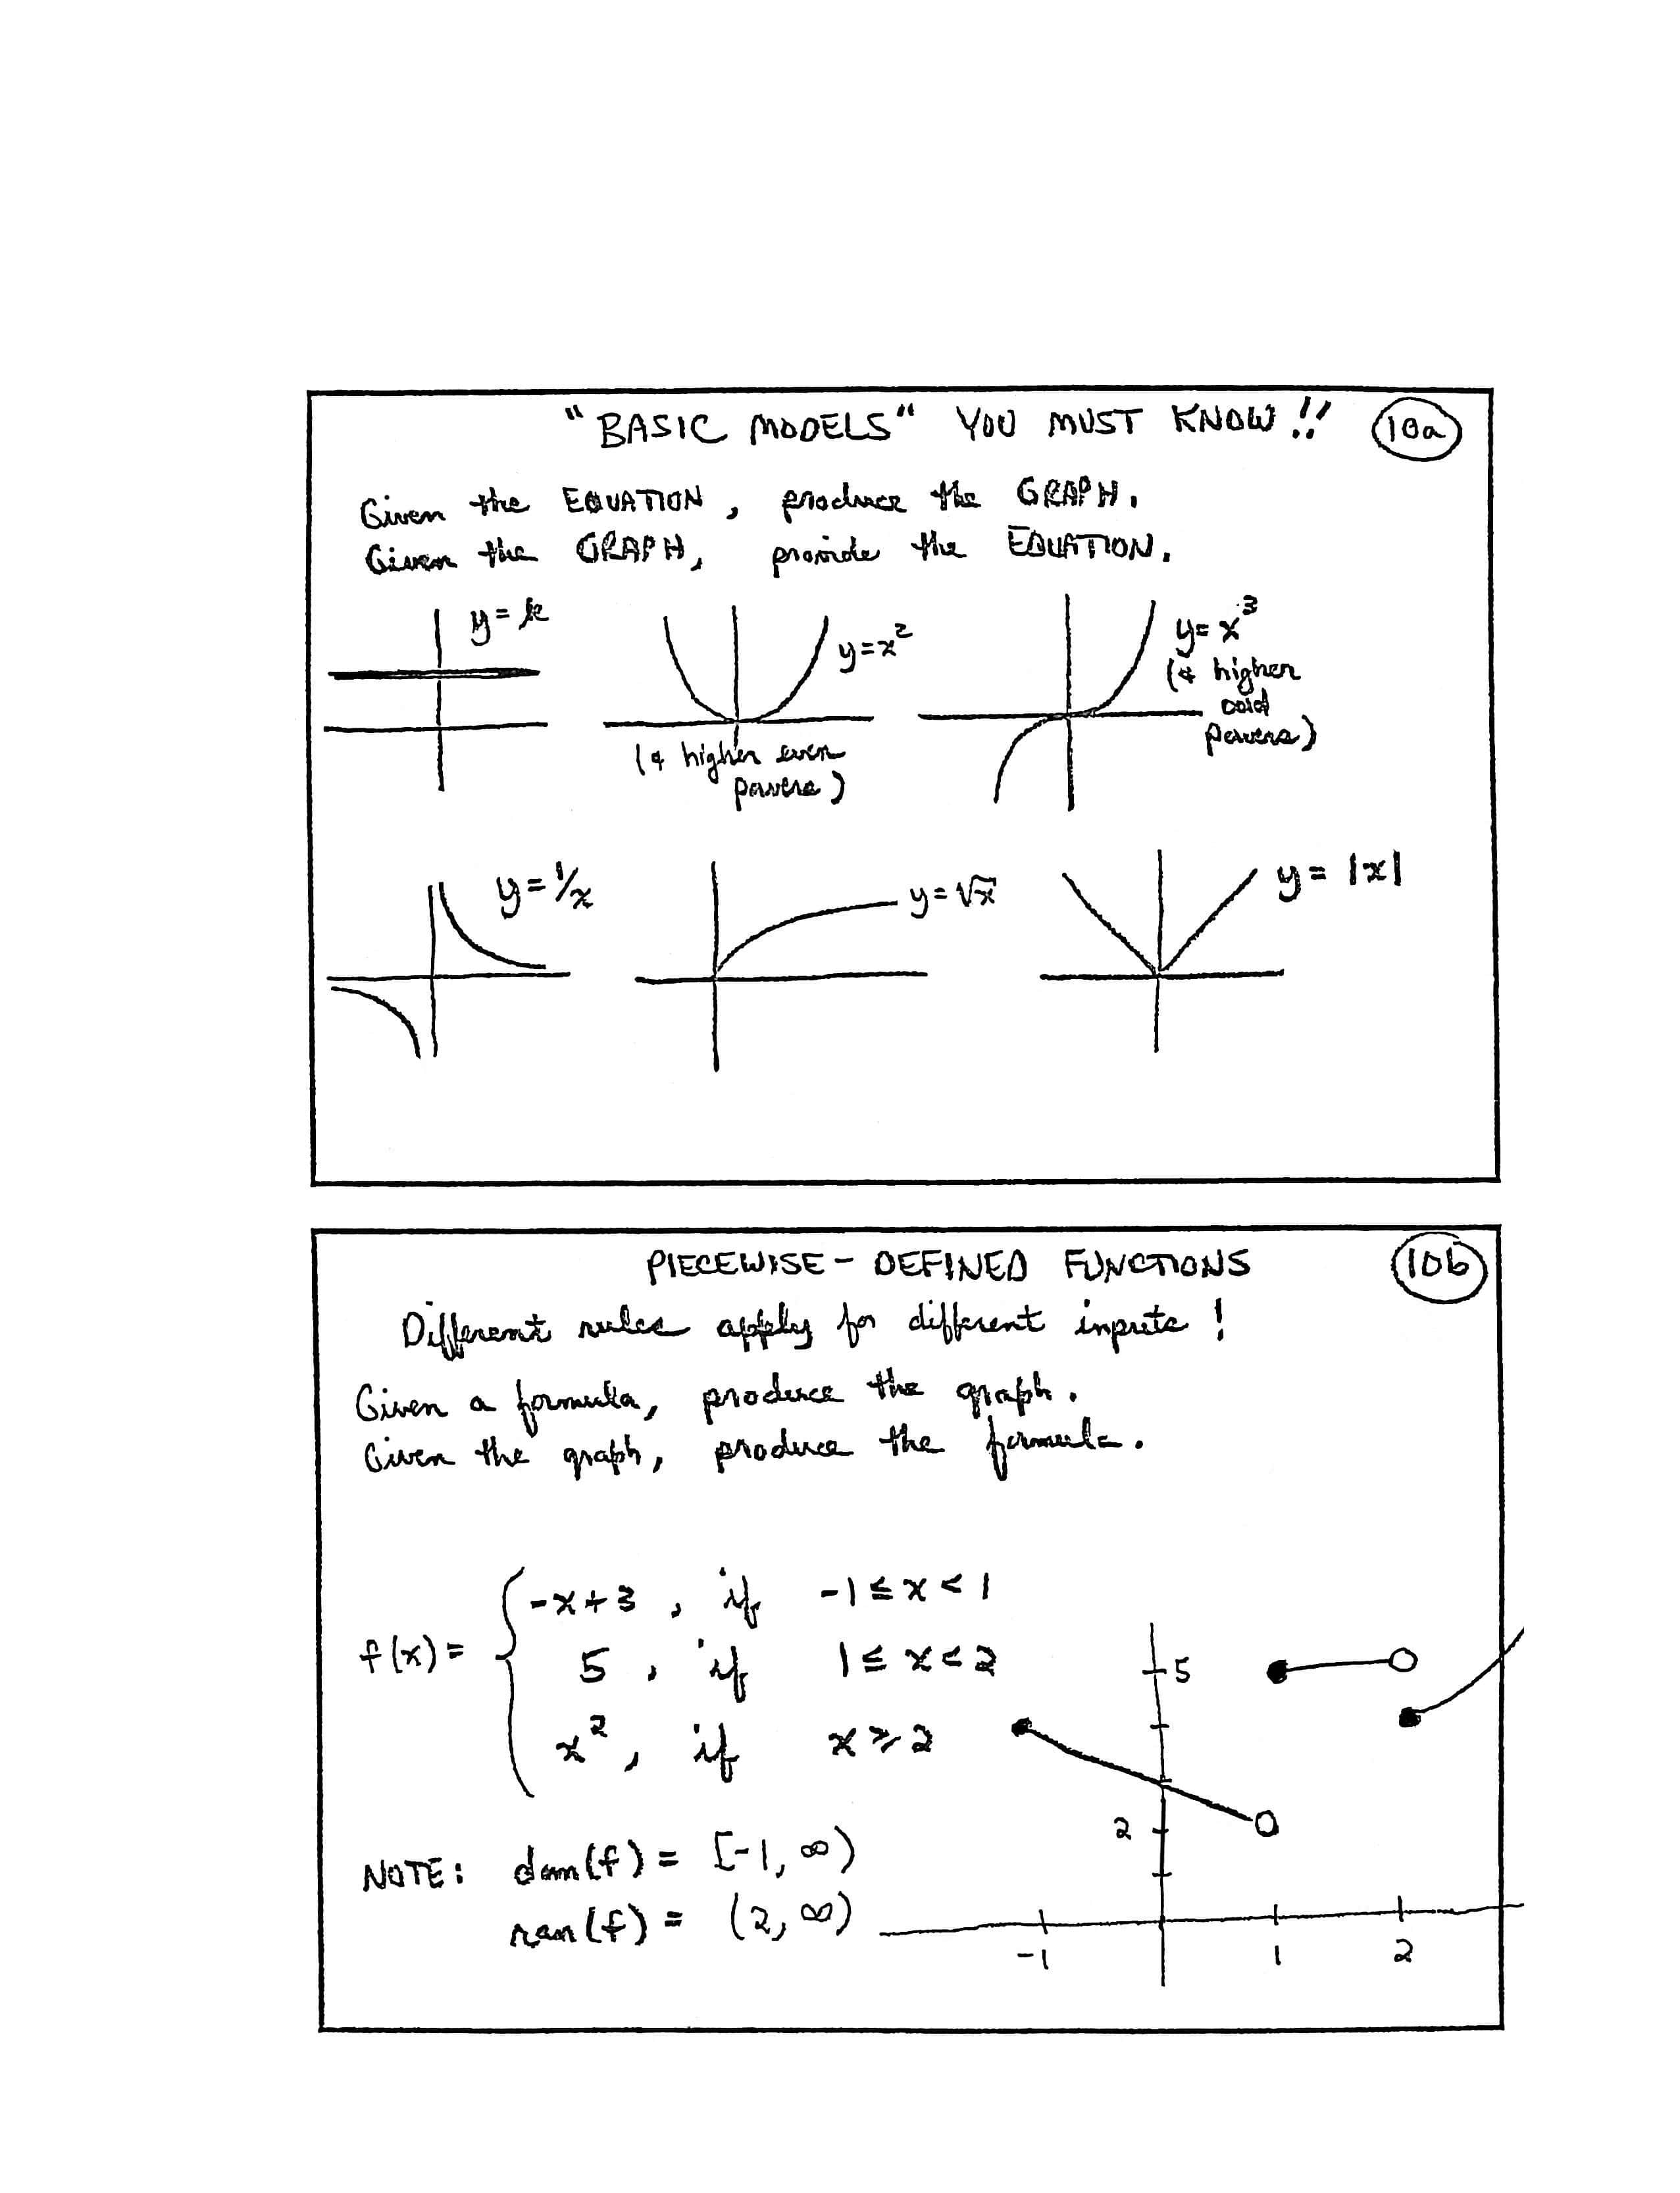 "BASIC MODELS" YOU MUST KNOW!! 10a
Given the EQUATION, produce the GRAPH.
Given the GRAPH, provide the EQUATION.
y = k
y = x²
(& higher even
powers)
y = x³
(& higher
odd
powers)
y = 1/x
y = √x
y = |x|
PIECEWISE - DEFINED FUNCTIONS 10b
Different rules apply for different inputs!
Given a formula, produce the graph.
Given the graph, produce the formula.
f(x) = {
-x+3, if -1 ≤ x < 1
5, if 1 ≤ x < 2
x², if x ≥ 2
NOTE: dom(f) = [-1, ∞)
ran(f) = (2, ∞)
5
2
-1 1 2